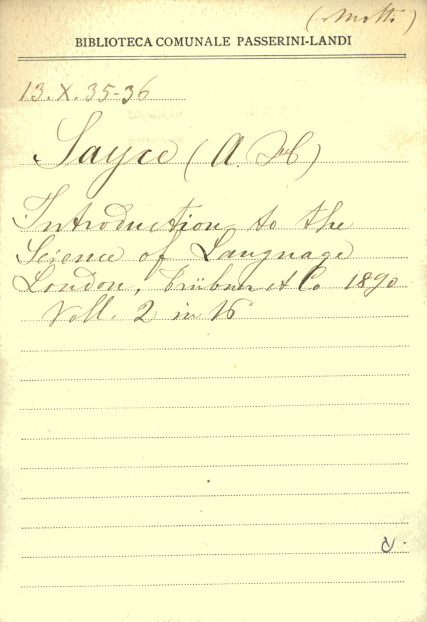 (Motti)
BIBLIOTECA COMUNALE PASSERINI-LANDI
13.X.35-36
Sayce (A. H)
Introduction to the
Science of Language
London, Trübner & Co 1890
Voll. 2 in 16